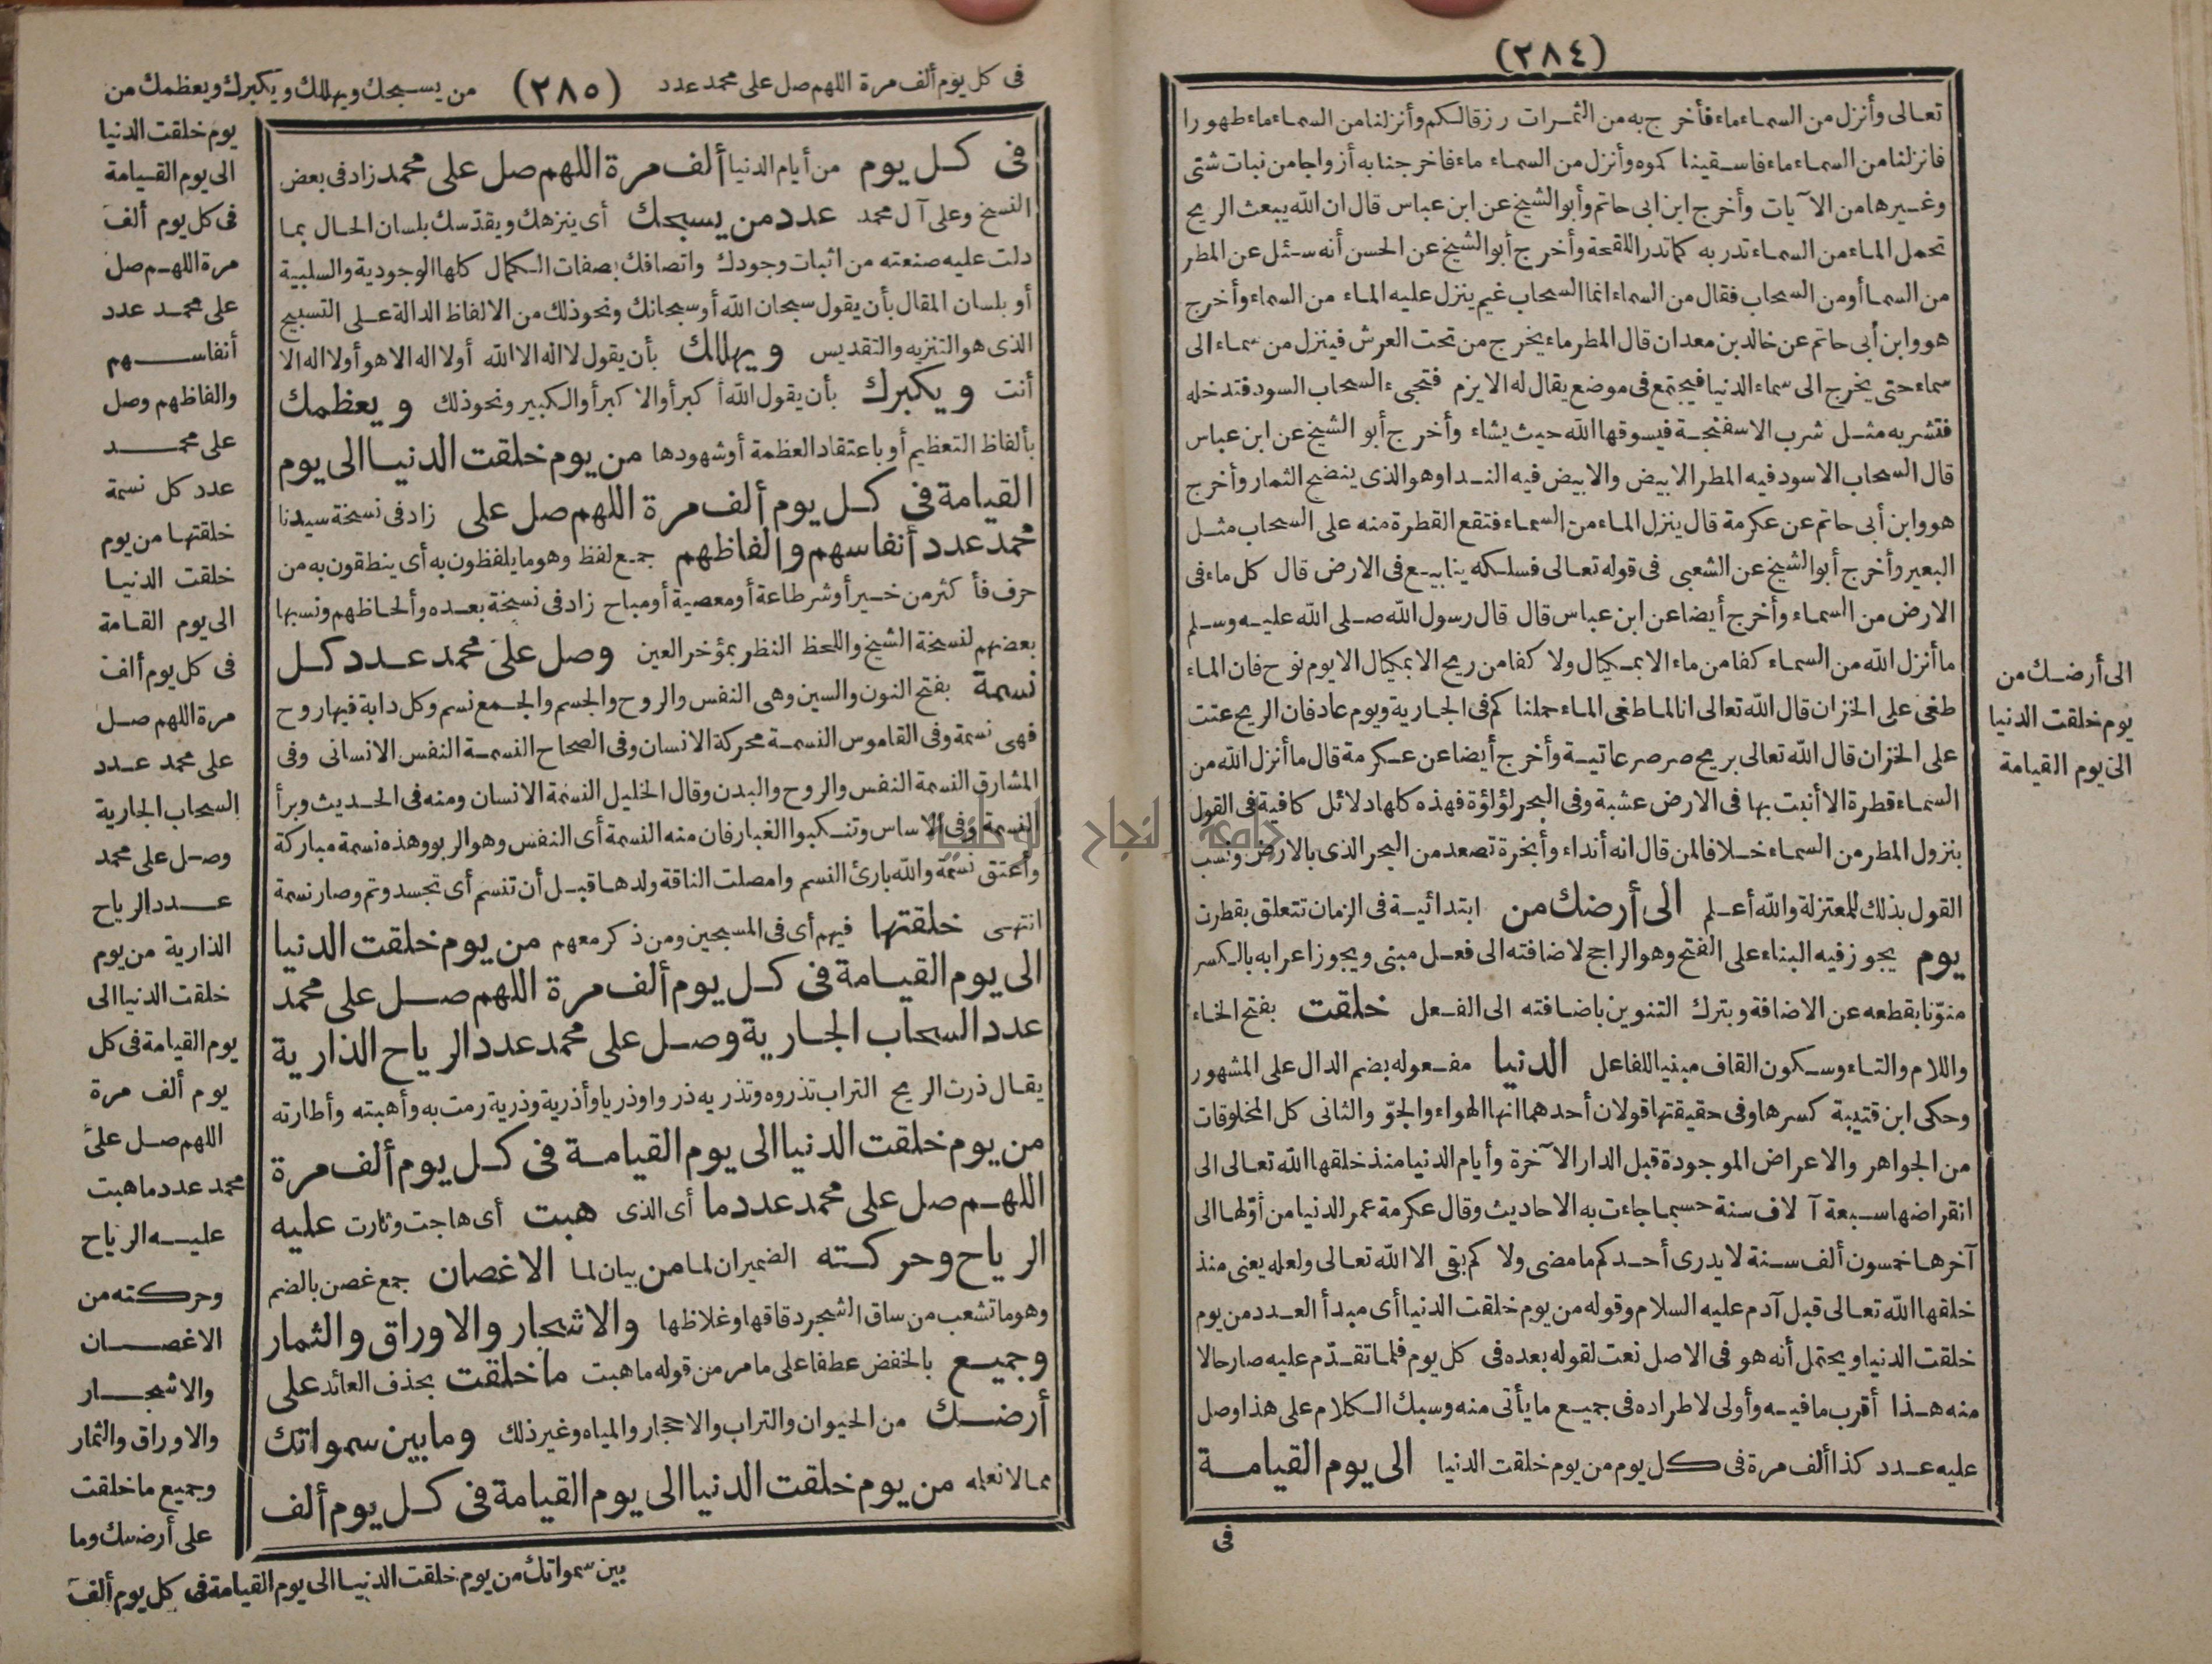 (٢٨٤)
تعالى وأنزل من السماء ماء فأخرج به من الثمرات رزقا لكم وأنزلنا من السماء ماء طهورا
فانزلنا من السماء ماء فاسقينا كموه وأنزل من السماء ماء فاخرجنا به أزواجا من نبات شتى
وغيرها من الآيات وأخرج ابن ابى حاتم وأبو الشيخ عن ابن عباس قال ان الله يبعث الريح
تحمل الماء من السماء تدر به كما تدر اللقحة وأخرج أبو الشيخ عن الحسن أنه سئل عن المطر
من السما أو من السحاب فقال من السماء انما السحاب غيم ينزل عليه الماء من السماء وأخرج
هو وابن أبى حاتم عن خالد بن معدان قال المطر ماء يخرج من تحت العرش فينزل من سماء الى
سماء حتى يخرج الى سماء الدنيا فيجتمع فى موضع يقال له الايزم فتجىء السحاب السود فتدخله
فتشربه مثل شرب الاسفنجة فيسوقها الله حيث يشاء وأخرج أبو الشيخ عن ابن عباس
قال السحاب الاسود فيه المطر الابيض والابيض فيه الندا وهو الذى ينضج الثمار وأخرج
هو وابن أبى حاتم عن عكرمة قال ينزل الماء من السماء فتقع القطرة منه على السحاب مثل
البعير وأخرج أبو الشيخ عن الشعبى فى قوله تعالى فسلكه ينابيع فى الارض قال كل ماء فى
الارض من السماء وأخرج أيضا عن ابن عباس قال قال رسول الله صلى الله عليه وسلم
ما أنزل الله من السماء كفا من ماء الا بمكيال ولا كفا من ريح الا بمكيال الا يوم نوح فان الماء
طغى على الخزان قال الله تعالى انا لما طغى الماء حملنا كم فى الجارية ويوم عاد فان الريح عتت
على الخزان قال الله تعالى بريح صرصر عاتية وأخرج أيضا عن عكرمة قال ما أنزل الله من
السماء قطرة الا أنبت بها فى الارض عشبة وفى البحر لؤلؤة فهذه كلها دلائل كافية فى القول
بنزول المطر من السماء خلافا لمن قال انه أنداء وأبخرة تصعد من البحر الذى بالارض ونسب
القول بذلك للمعتزلة والله أعلم الى أرضك من ابتدائية فى الزمان تتعلق بقطرت
يوم يجوز فيه البناء على الفتح وهو الراجح لاضافته الى فعل مبنى ويجوز اعرابه بالكسر
منوّنا بقطعه عن الاضافة وبترك التنوين باضافته الى الفعل خلقت بفتح الخاء
واللام والتاء وسكون القاف مبنيا للفاعل الدنيا مفعوله بضم الدال على المشهور
وحكى ابن قتيبة كسرها وفى حقيقتها قولان أحدهما انها الهواء والجوّ والثانى كل المخلوقات
من الجواهر والاعراض الموجودة قبل الدار الآخرة وأيام الدنيا منذ خلقها الله تعالى الى
انقراضها سبعة آلاف سنة حسبما جاءت به الاحاديث وقال عكرمة عمر الدنيا من أوّلها الى
آخرها خمسون ألف سنة لا يدرى أحدكم ما مضى ولا كم بقى الا الله تعالى ولعله يعنى منذ
خلقها الله تعالى قبل آدم عليه السلام وقوله من يوم خلقت الدنيا أى مبدأ العدد من يوم
خلقت الدنيا ويحتمل أنه هو فى الاصل نعت لقوله بعده فى كل يوم فلما تقدّم عليه صار حالا
منه هذا أقرب ما فيه وأولى لاطراده فى جميع ما يأتى منه وسبك الكلام على هذا وصل
عليه عدد كذا ألف مرة فى كل يوم من يوم خلقت الدنيا الى يوم القيامة
فى
الى أرضك من
يوم خلقت الدنيا
الى يوم القيامة
فى كل يوم ألف مرة اللهم صل على محمد عدد (٢٨٥) من يسبحك ويهللك ويكبرك ويعظمك من
فى كل يوم من أيام الدنيا ألف مرة اللهم صل على محمد زاد فى بعض
النسخ وعلى آل محمد عدد من يسبحك أى ينزهك ويقدّسك بلسان الحال بما
دلت عليه صنعته من اثبات وجودك واتصافك بصفات الكمال كلها الوجودية والسلبية
أو بلسان المقال بأن يقول سبحان الله أو سبحانك ونحو ذلك من الالفاظ الدالة على التسبيح
الذى هو التنزيه والتقديس ويهللك بأن يقول لا اله الا الله أو لا اله الا هو أو لا اله الا
أنت ويكبرك بأن يقول الله أكبر أو الا كبر أو الكبير ونحو ذلك ويعظمك
بألفاظ التعظيم أو باعتقاد العظمة أو شهودها من يوم خلقت الدنيا الى يوم
القيامة فى كل يوم ألف مرة اللهم صل على زاد فى نسخة سيدنا
محمد عدد أنفاسهم وألفاظهم جمع لفظ وهو ما يلفظون به أى ينطقون به من
حرف فأكثر من خير أو شر طاعة أو معصية أو مباح زاد فى نسخة بعده وألحاظهم ونسبها
بعضهم لنسخة الشيخ واللحظ النظر بمؤخر العين وصل على محمد عدد كل
نسمة بفتح النون والسين وهى النفس والروح والجسم والجمع نسم وكل دابة فيها روح
فهى نسمة وفى القاموس النسمة محركة الانسان وفى الصحاح النسمة النفس الانسانى وفى
المشارق النسمة النفس والروح والبدن وقال الخليل النسمة الانسان ومنه فى الحديث وبرأ
النسمة وفى الاساس وتنكبوا الغبار فان منه النسمة أى النفس وهو الربو وهذه نسمة مباركة
وأعتق نسمة والله بارئ النسم وامصلت الناقة ولدها قبل أن تنسم أى تجسد وتم وصار نسمة
انتهى خلقتها فيهم أى فى المسبحين ومن ذكر معهم من يوم خلقت الدنيا
الى يوم القيامة فى كل يوم ألف مرة اللهم صل على محمد
عدد السحاب الجارية وصل على محمد عدد الرياح الذارية
يقال ذرت الريح التراب تذروه وتذريه ذروا وذريا وأذرية وذرية رمت به وأهبته وأطارته
من يوم خلقت الدنيا الى يوم القيامة فى كل يوم ألف مرة
اللهم صل على محمد عدد ما أى الذى هبت أى هاجت وثارت عليه
الرياح وحركته الضميران لما من بيان لما الاغصان جمع غصن بالضم
وهو ما تشعب من ساق الشجر دقاقها وغلاظها والاشجار والاوراق والثمار
وجميع بالخفض عطفا على ما مر من قوله ما هبت ما خلقت بحذف العائد على
أرضك من الحيوان والتراب والاحجار والمياه وغير ذلك وما بين سمواتك
مما لا نعلمه من يوم خلقت الدنيا الى يوم القيامة فى كل يوم ألف
يوم خلقت الدنيا
الى يوم القيامة
فى كل يوم ألف
مرة اللهم صل
على محمد عدد
أنفاسهم
والفاظهم وصل
على محمد
عدد كل نسمة
خلقتها من يوم
خلقت الدنيا
الى يوم القامة
فى كل يوم ألف
مرة اللهم صل
على محمد عدد
السحاب الجارية
وصل على محمد
عدد الرياح
الذارية من يوم
خلقت الدنيا الى
يوم القيامة فى كل
يوم ألف مرة
اللهم صل على
محمد عدد ما هبت
عليه الرياح
وحركته من
الاغصان
والاشجار
والاوراق والثمار
وجميع ما خلقت
على أرضك وما
بين سمواتك من يوم خلقت الدنيا الى يوم القيامة فى كل يوم ألف
جامعة النجاح الوطنية